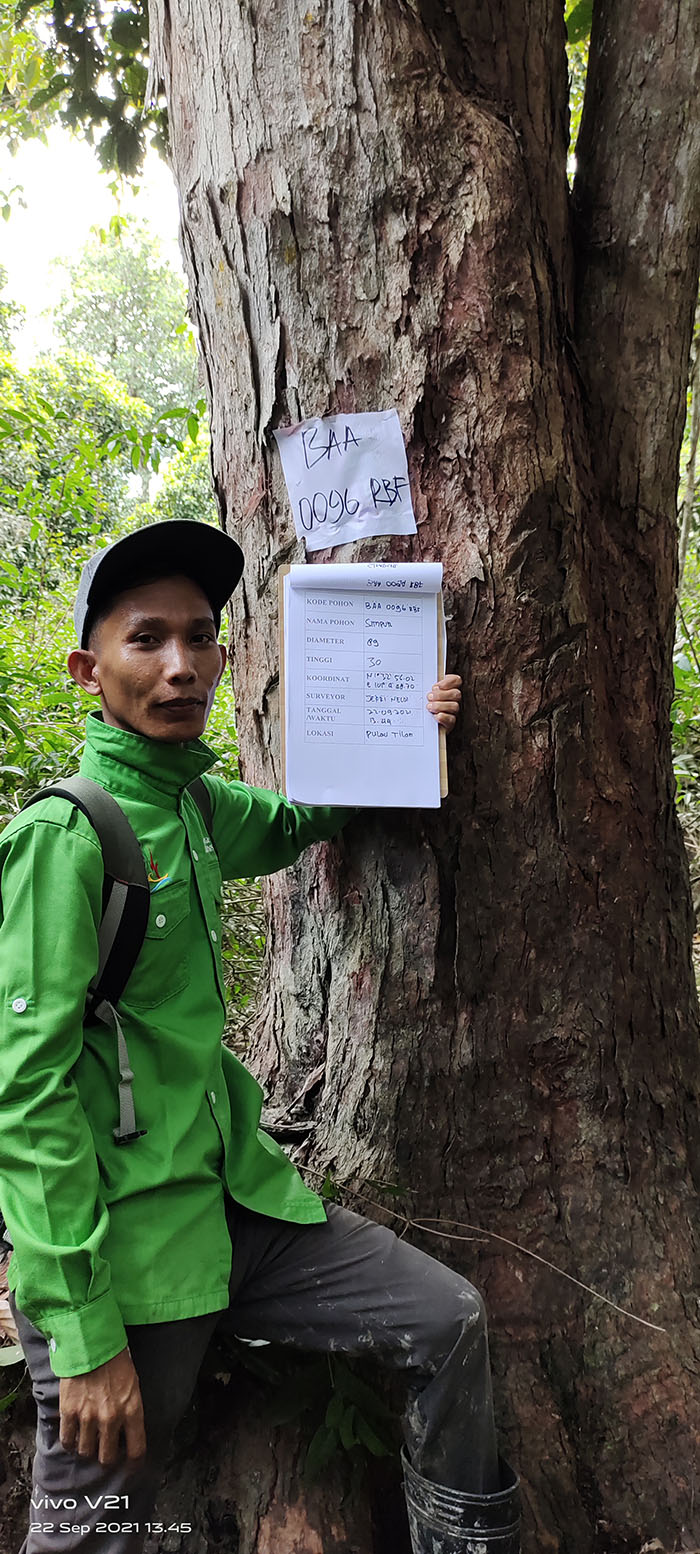 BAA
0096 RBF
BAA 0096 RBF
KODE POHON BAA 0096 RBF
NAMA POHON SIMPUR
DIAMETER 89
TINGGI 30
KOORDINAT
SURVEYOR
TANGGAL 22-09-2021
/WAKTU 13.49
LOKASI PULAU TILAN
vivo V21
22 Sep 2021 13.45